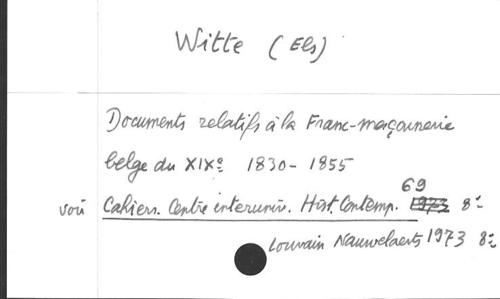 Witte (Els)
Documents relatifs à la Franc-maçonnerie
belge du XIXe 1830-1855
69
voir Cahiers. Centre interuniv. Hist. Contemp. 1973 8°
Louvain Nauwelaerts 1973 8°